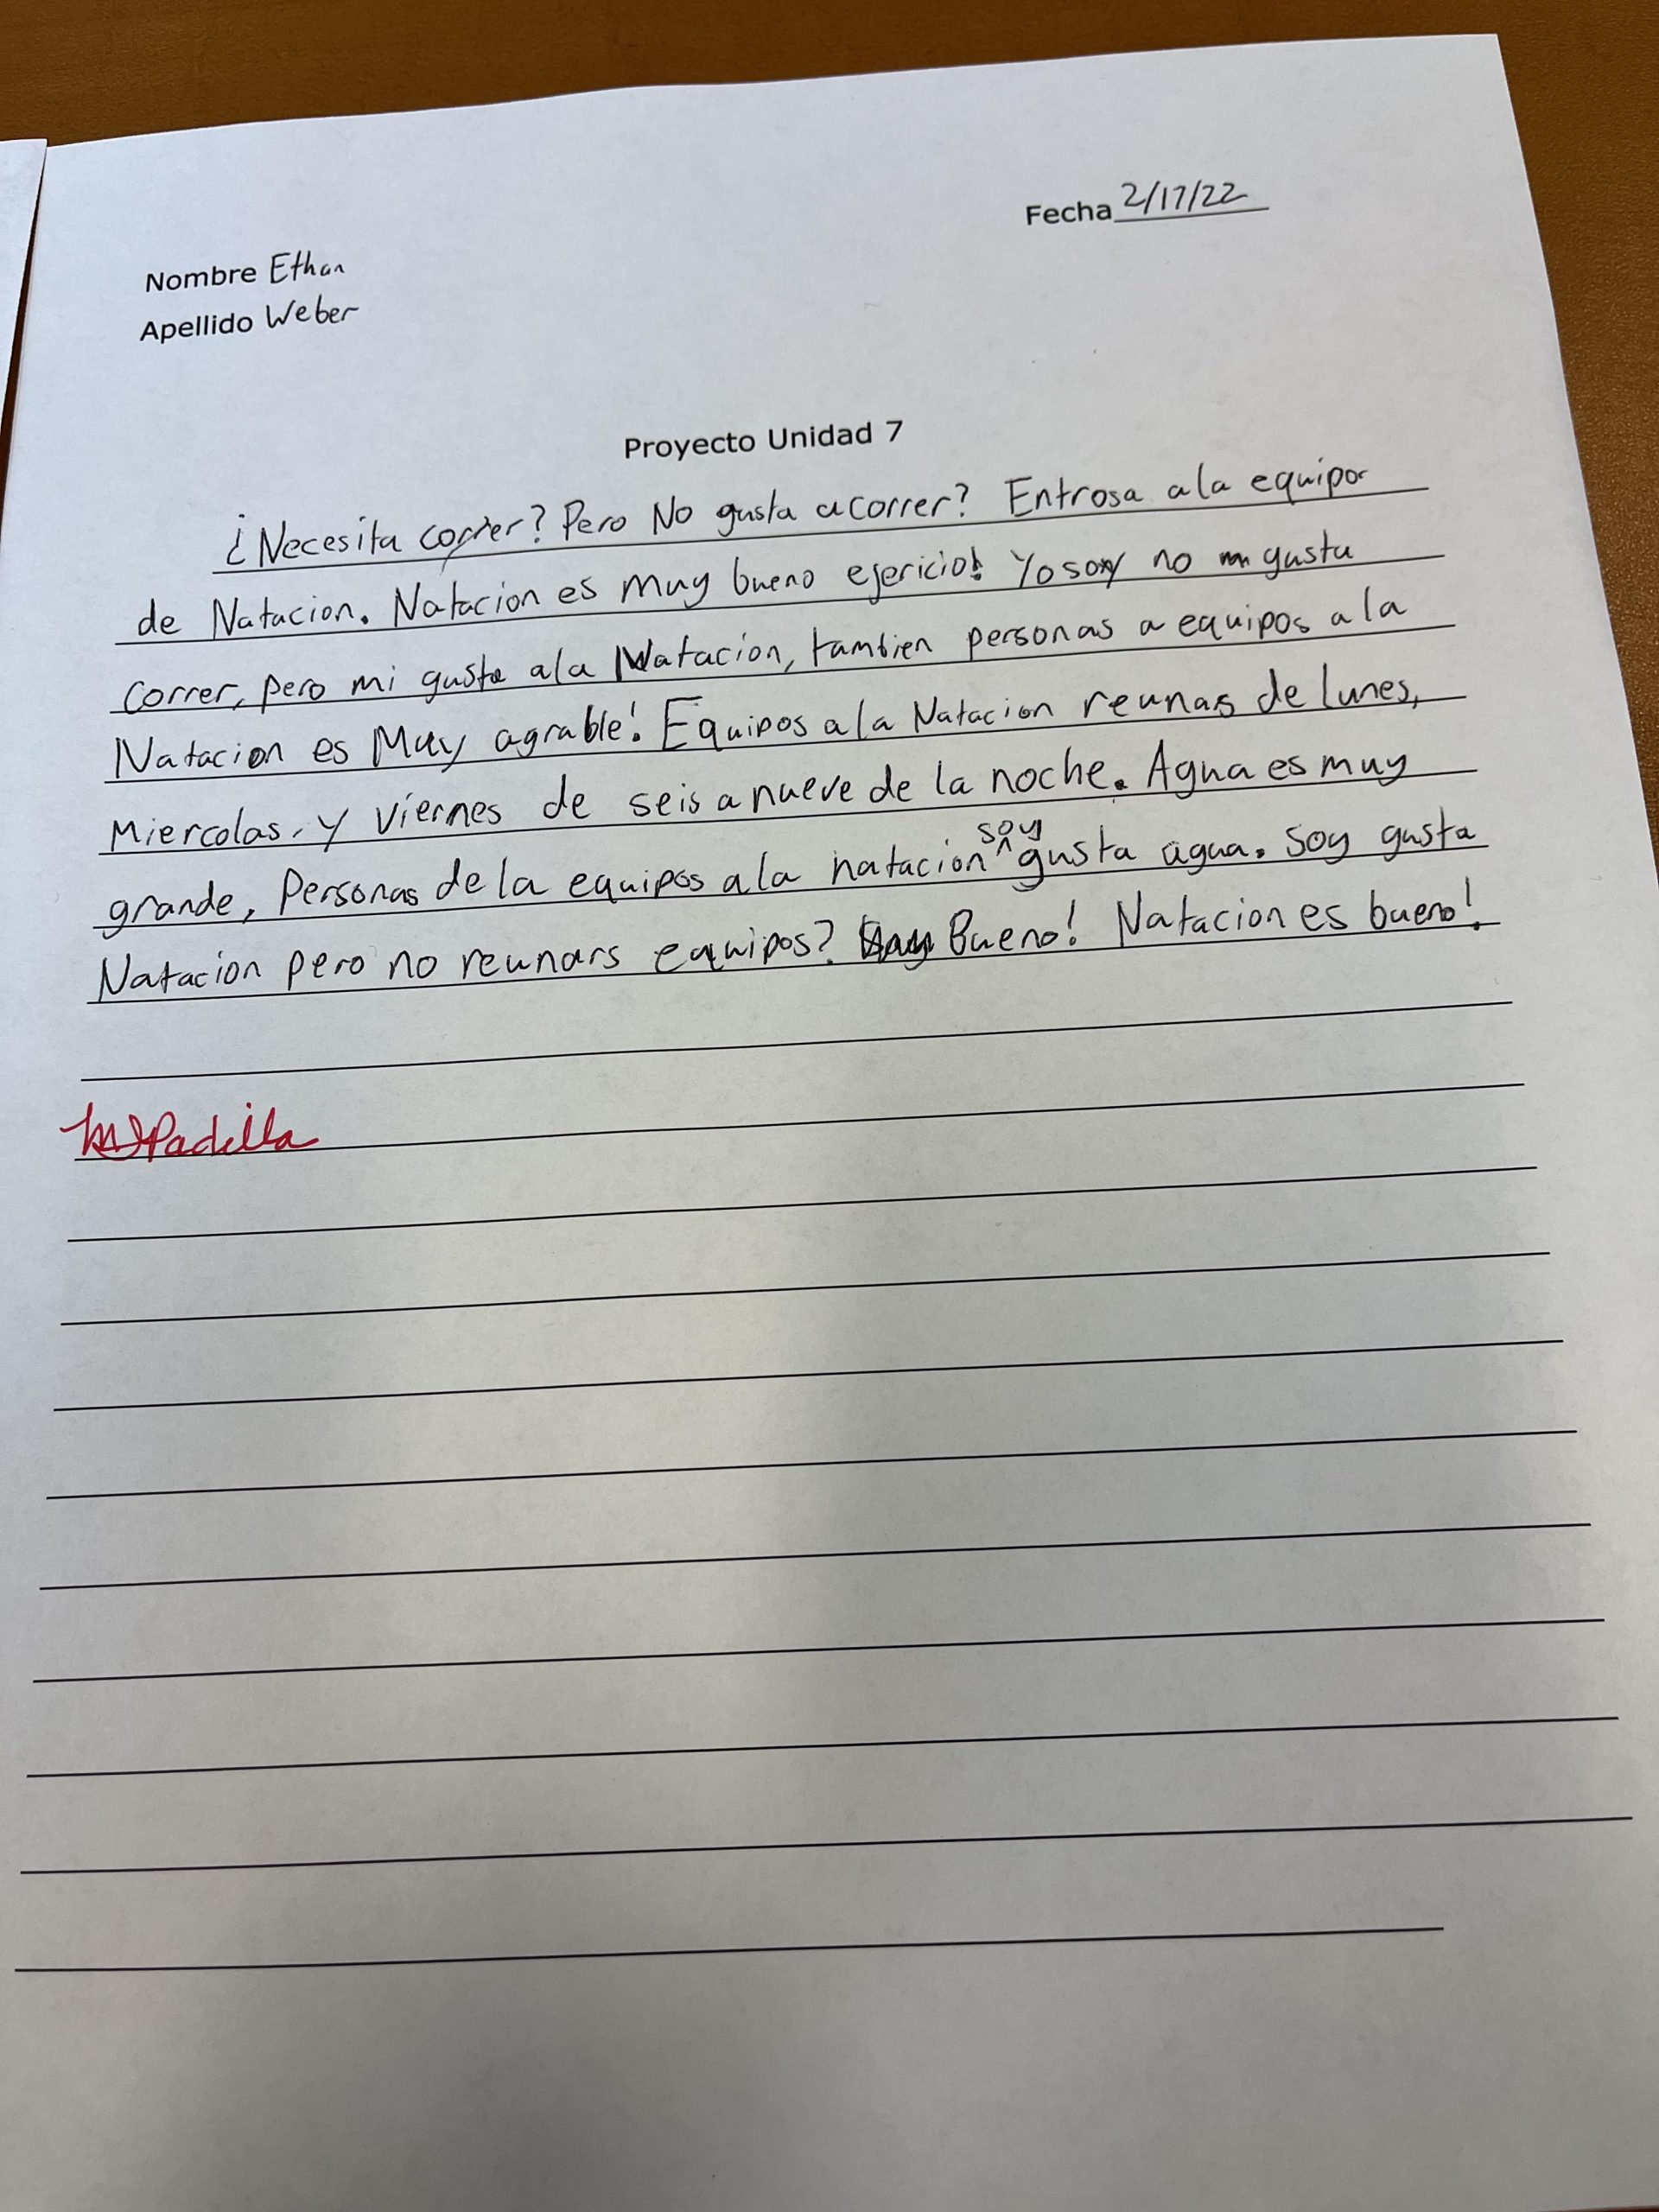 Fecha 2/17/22
Nombre Ethan
Apellido Weber
Proyecto Unidad 7
¿Necesita correr? Pero No gusta a correr? Entrosa a la equipo
de Natacion. Natacion es muy bueno ejericio! Yo soy no gusta
correr, pero mi gusta a la Natacion, tambien personas a equipos a la
Natacion es Muy agrable! Equipos a la Natacion reunas de lunes,
Miercolas, y viernes de seis a nueve de la noche. Agua es muy
grande, Personas de la equipos a la natacion soy gusta agua. Soy gusta
Natacion pero no reunars equipos? Bueno! Natacion es bueno!
Padilla